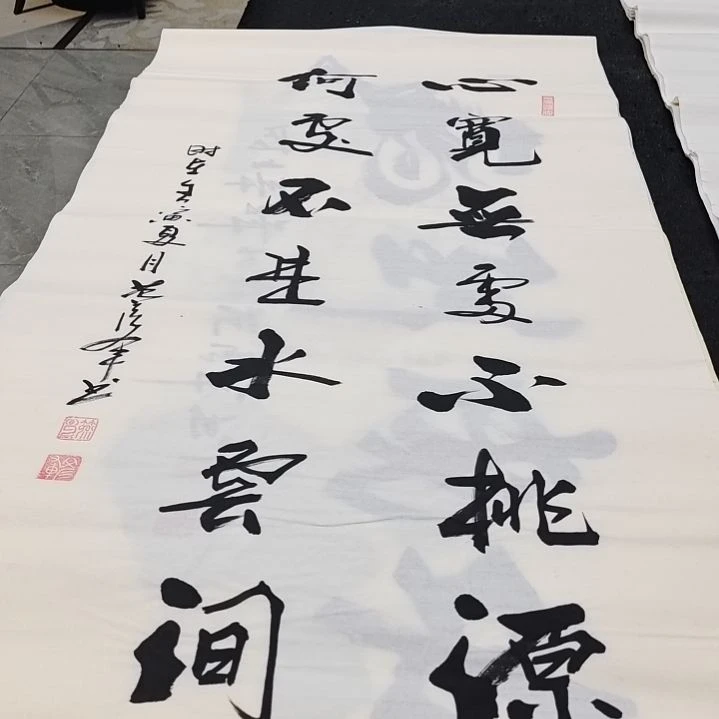 心寬無處不桃源
何處不是水雲間
时在壬寅夏月